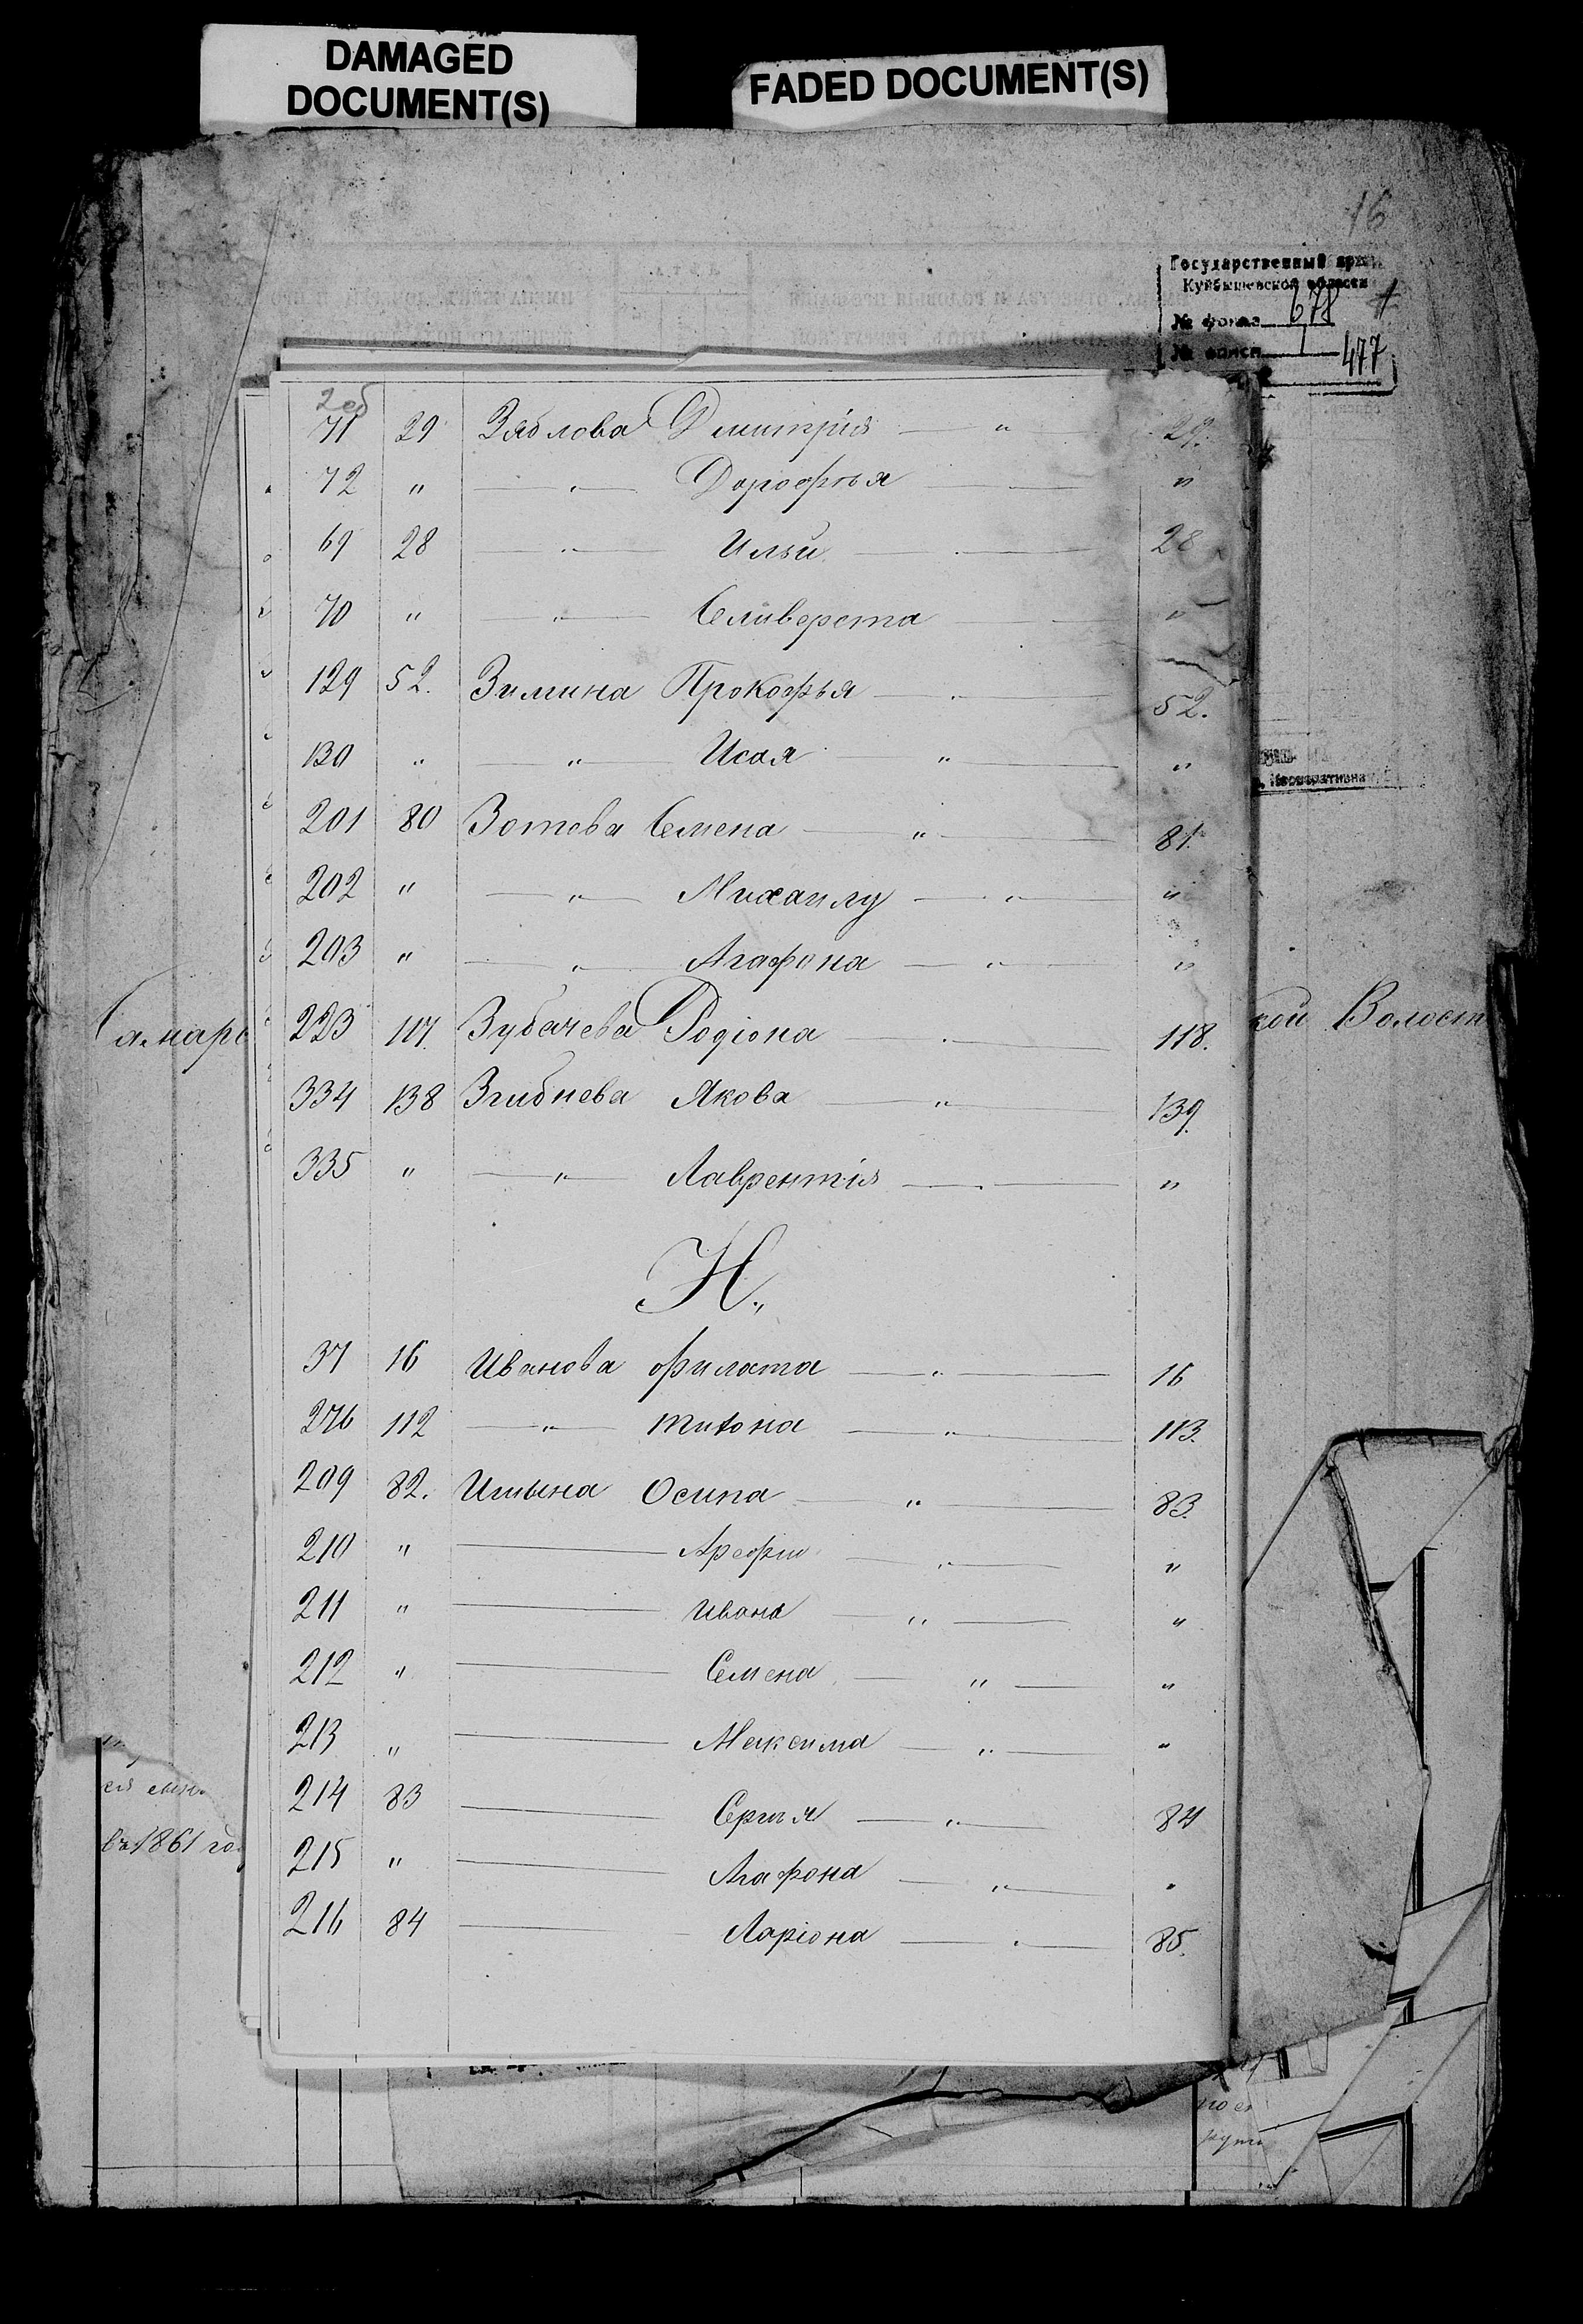 DAMAGED
DOCUMENT(S)
FADED DOCUMENT(S)
16
Государственный архив
Куйбышевской области
№ фонда 678
№ описи 1
477
2об
71 29 Зяблова Дмитрія " 29.
72 " " Дорофѣя "
69 28 " Ильи " 28
70 " " Селиверста "
129 52. Зимина Прокофья " 52.
130 " " Исая " "
201 80 Зотева Семена " 81.
202 " " Михаилу " "
203 " " Агафона " "
223 117. Зубачева Родіона " 118.
334 138 Згибнева Якова " 139.
335 " " Лаврентія "
И.,
37 16 Иванова Филата " 16
276 112 " Титона " 113.
209 82. Ильина Осипа " 83.
210 " Арефи " "
211 " Ивана " "
212 " Семена " "
213 " Максима " "
214 83 Сергѣя " 84
215 " Агафона " "
216 84 Ларіона " 85.
Самарс
кой Волост
въ 1861 го